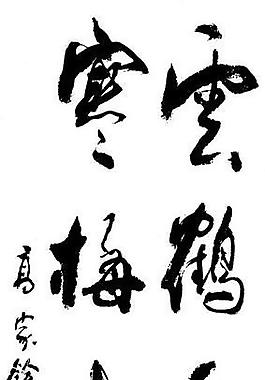 雲鶴
寒梅
高家